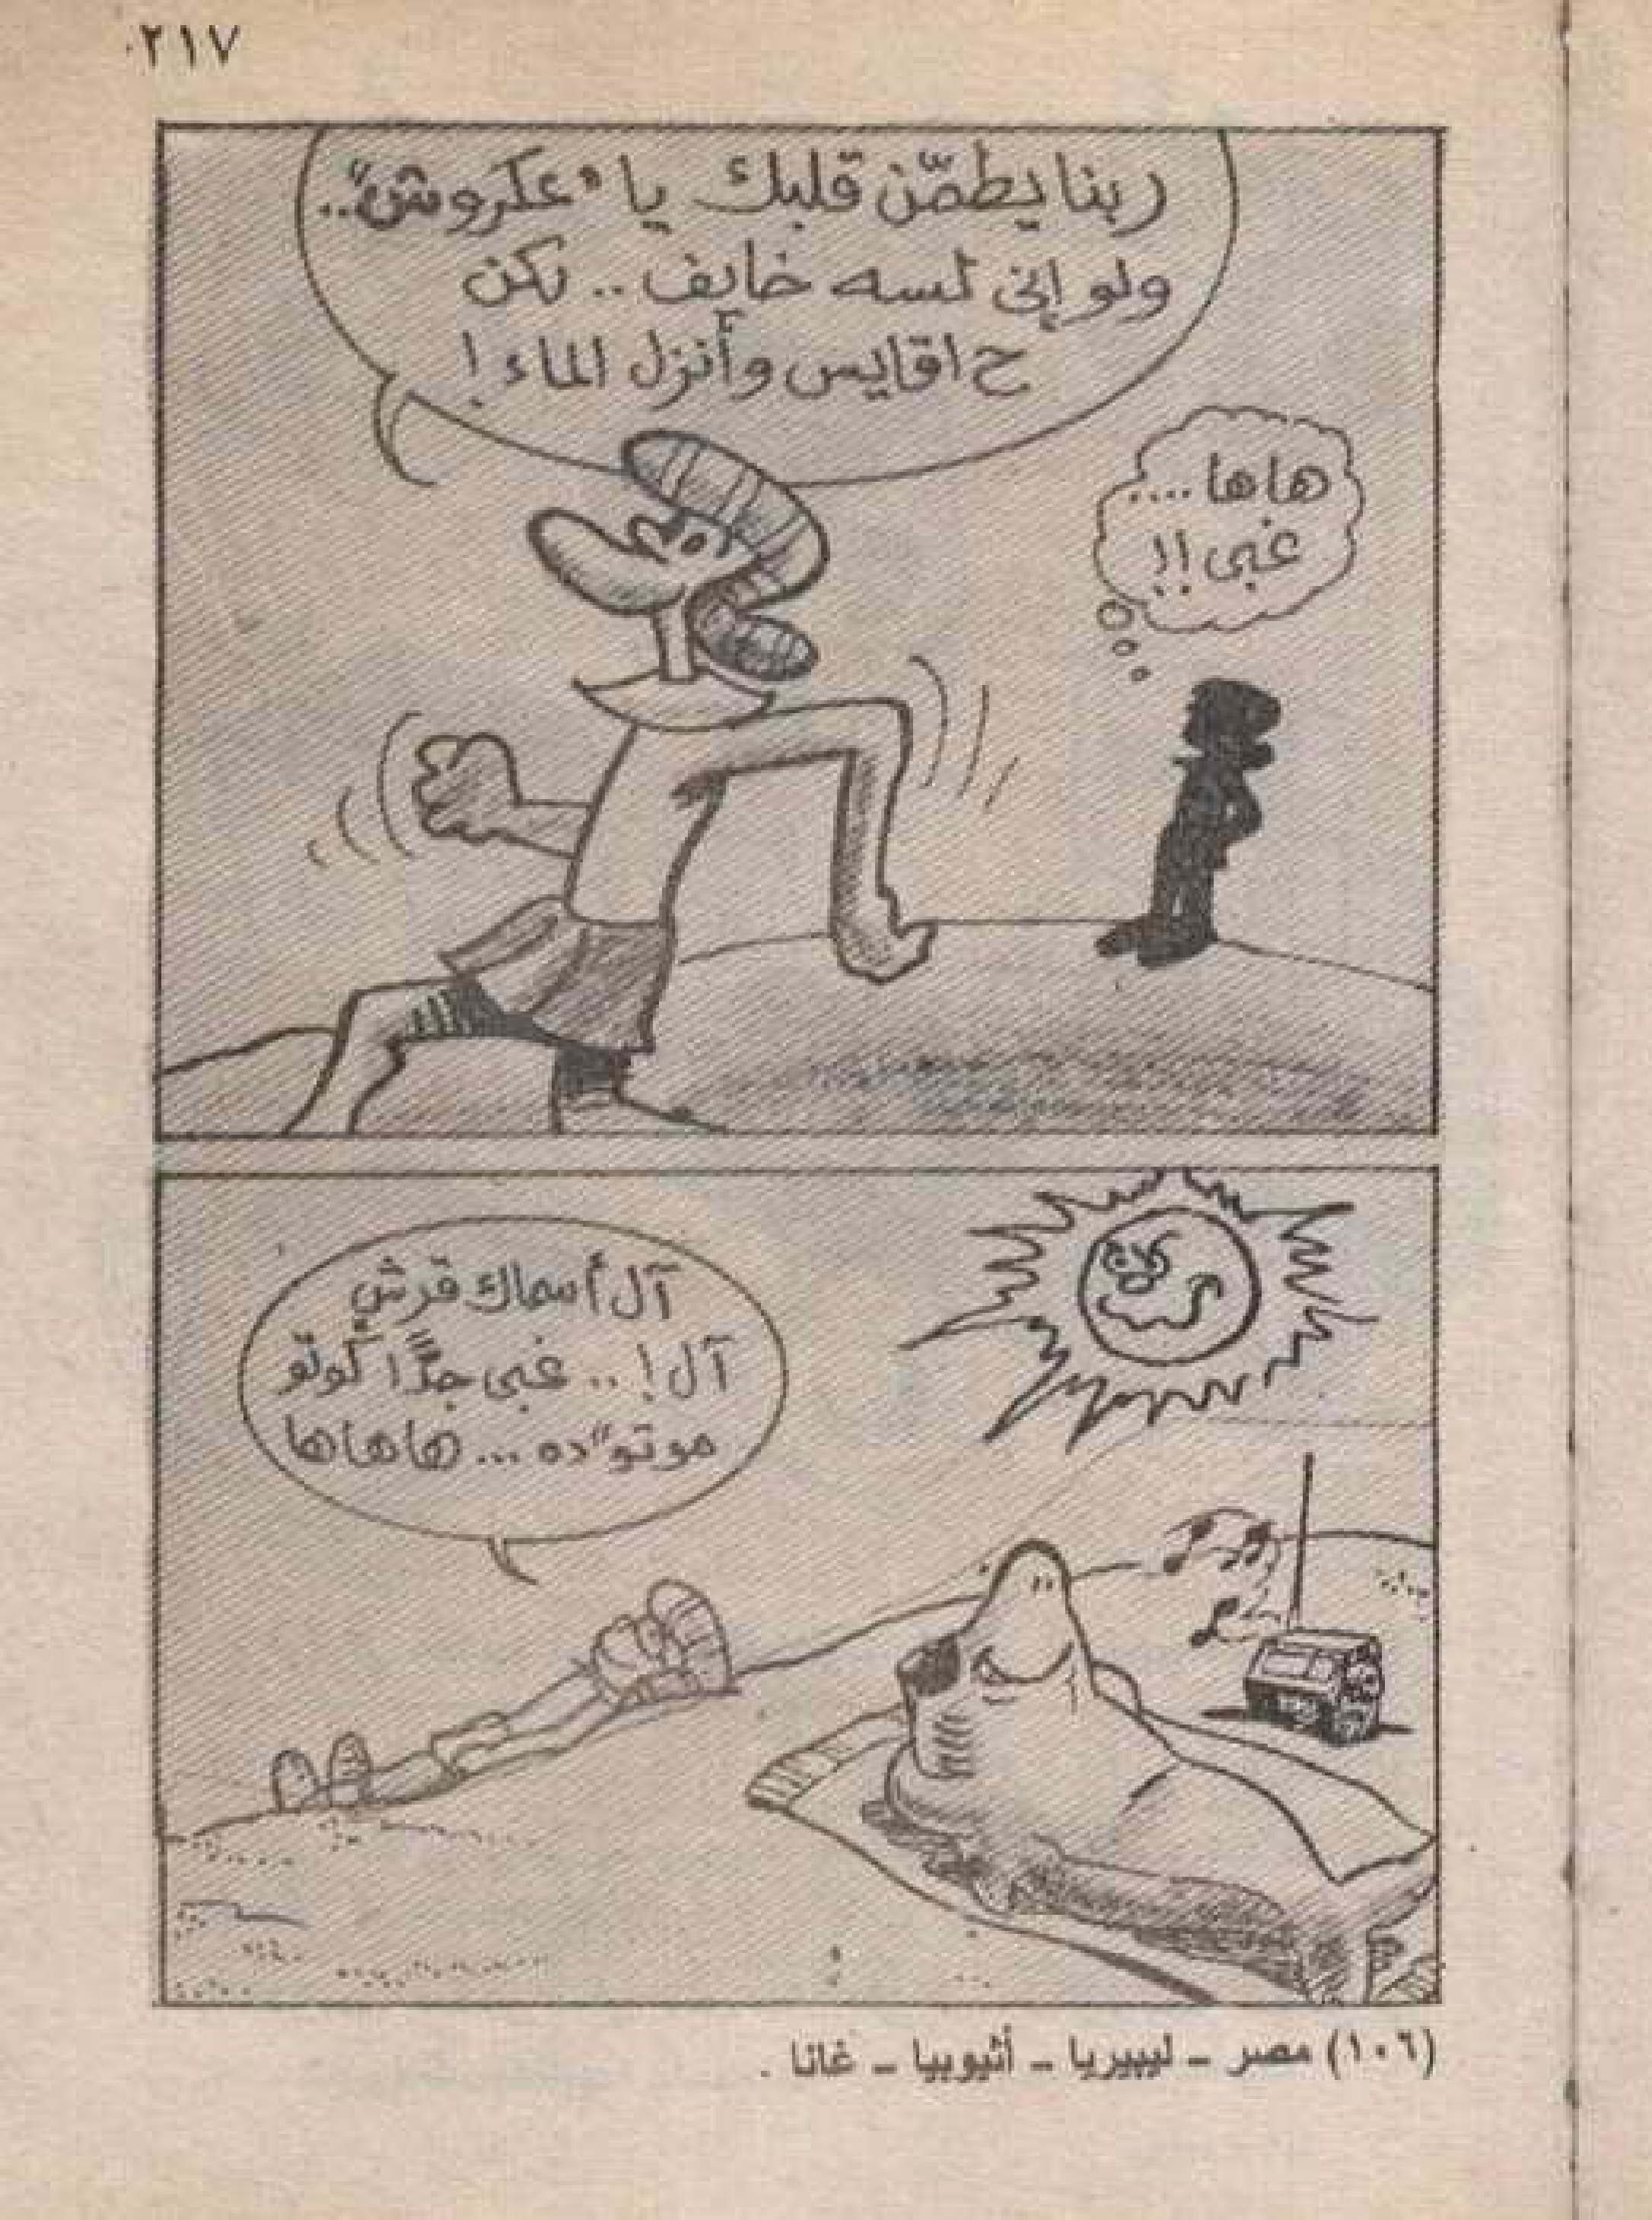 ٢١٧
ربنا يطمّن قلبك يا "عكروش"..
ولو إنى لسه خايف .. لكن
ح اقايس وأنزل الماء !
هاها ....
غبى !!
آل أسماك قرش
آل ! .. غبى جدًّا "كوتو
موتو" ده ... هاهاها
(١٠٦) مصر – ليبيريا – أثيوبيا – غانا .